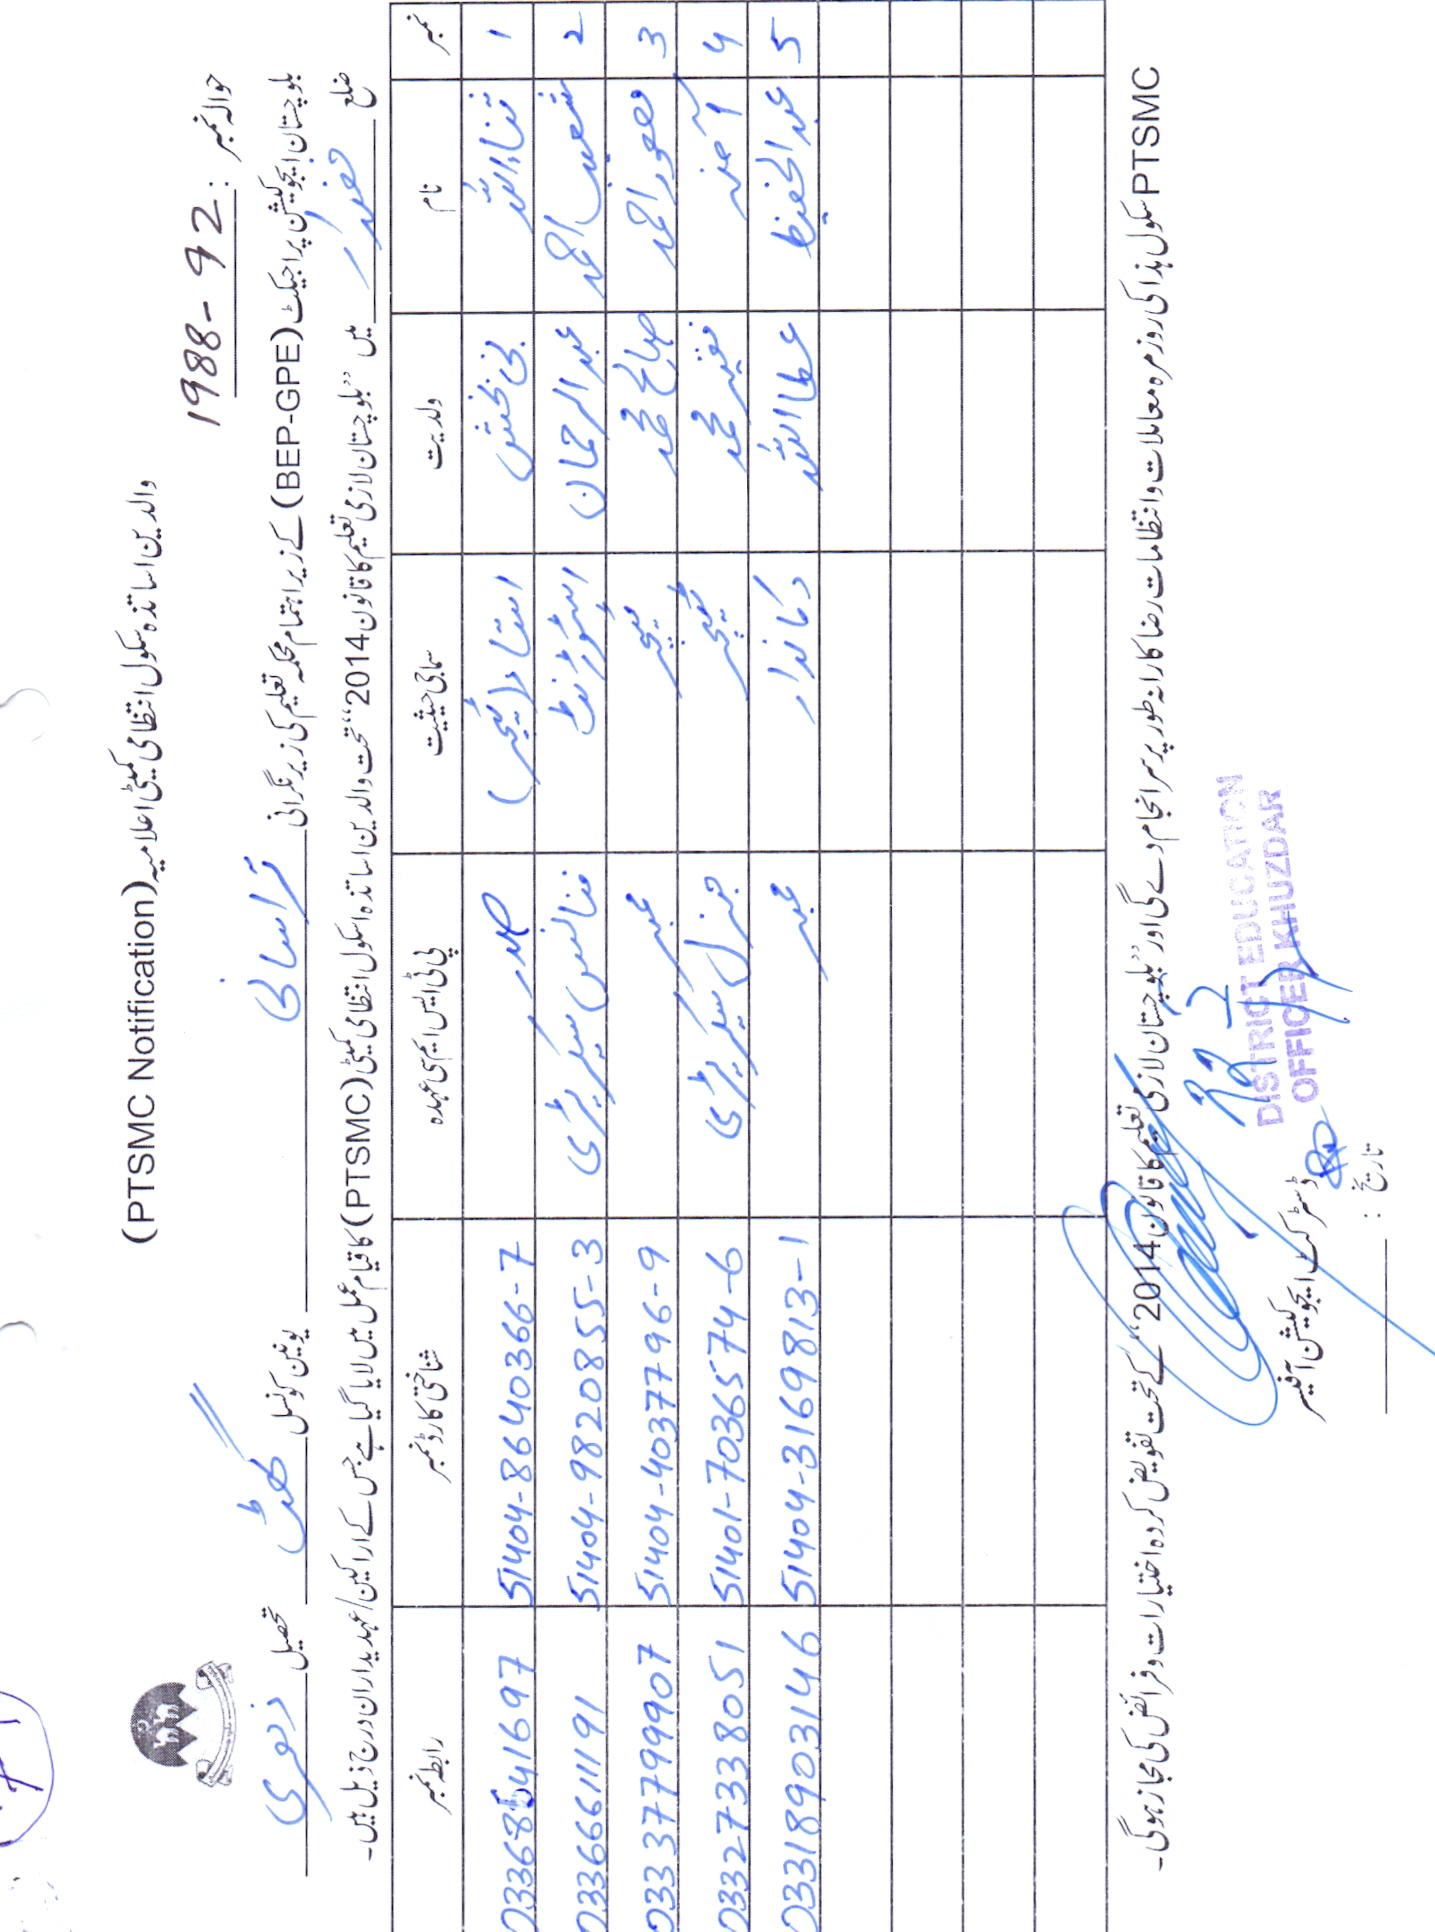 والدین اساتذہ سکول انتظامی کمیٹی اعلامیہ (PTSMC Notification)
حوالہ نمبر: 1988-92
بلوچستان ایجوکیشن پراجیکٹ (BEP-GPE) کے زیر اہتمام محکمہ تعلیم کی زیر نگرانی خراسانی یونین کونسل تحصیل زہری
ضلع خضدار میں "بلوچستان لازمی تعلیم کا قانون 2014" تحت والدین اساتذہ اسکول انتظامی کمیٹی (PTSMC) کا قیام عمل میں لایا گیا ہے جس کے اراکین/عہدیداران درج ذیل ہیں۔
نمبر نام ولدیت سماجی حیثیت پی ٹی ایس ایم سی عہدہ شناختی کارڈ نمبر رابطہ نمبر
1 ثناءاللہ نبی بخش استاد (ٹیچر) صدر 51404-8640366-7 03368541697
2 شعیب احمد عبدالرحمان اسٹوڈنٹ فنانس سیکریٹری 51404-9820855-3 03366611191
3 احمد صالح محمد ٹیچر ممبر 51404-4037796-9 03337799907
4 آمنہ فقیر محمد ٹیچر جنرل سیکریٹری 51401-7036574-6 03327338051
5 عبدالحفیظ عطااللہ دکاندار ممبر 51404-3169813-1 03318903146
PTSMC سکول ہذا کی روزمرہ معاملات و انتظامات رضا کارانہ طور پر سرانجام دے گی اور "بلوچستان لازمی تعلیم کا قانون 2014" کے تحت تفویض کردہ اختیارات و فرائض کی مجاز ہوگی۔
DISTRICT EDUCATION
OFFICER KHUZDAR
ڈسٹرکٹ ایجوکیشن آفیسر
تاریخ: